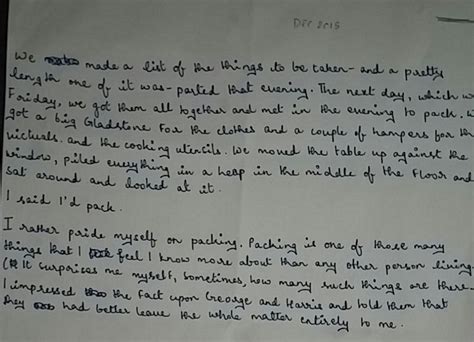 DSC 2013
We made a list of the things to be taken - and a pretty
length one of it was - parted that evening. The next day, which w
Friday, we got them all together and met in the evening to pack. w
got a big Gladstone for the clothes and a couple of hampers for th
victuals. and the cooking utencils. We moved the table up against the
window, piled everything in a heap in the middle of the floor and
sat around and looked at it.
I said I'd pack.
I rather pride myself on packing. Packing is one of those many
things that I feel I know more about than any other person living.
(It surprises me myself, sometimes, how many such things are there.
I impressed the fact upon George and Harris and told them that
they had better leave the whole matter entirely to me.